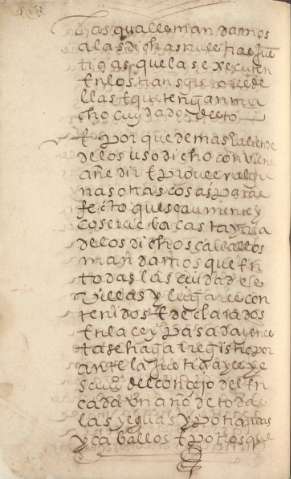 las quales mandamos
a las dichas nuestras Jus
tiçias que las executen
En los transgresores de
llas E que tengan mu
cho cuydado dello
E Por que demas y aliende
de lo suso dicho conviene
añedir E Proveer algu
nas otras cosas Para e
fecto que se aumente y
conserve la casta y rraça
de los dichos caballos
mandamos que En
todas las ciudades e
Villas y lugares con
tenidos E declarados
En la ley Pasada desuso
se haga rregistro por
ante la Justiçia y ees
del concejo del En
cada Vn año de todas
las yeguas y Potrancas
y caballos E Potros que